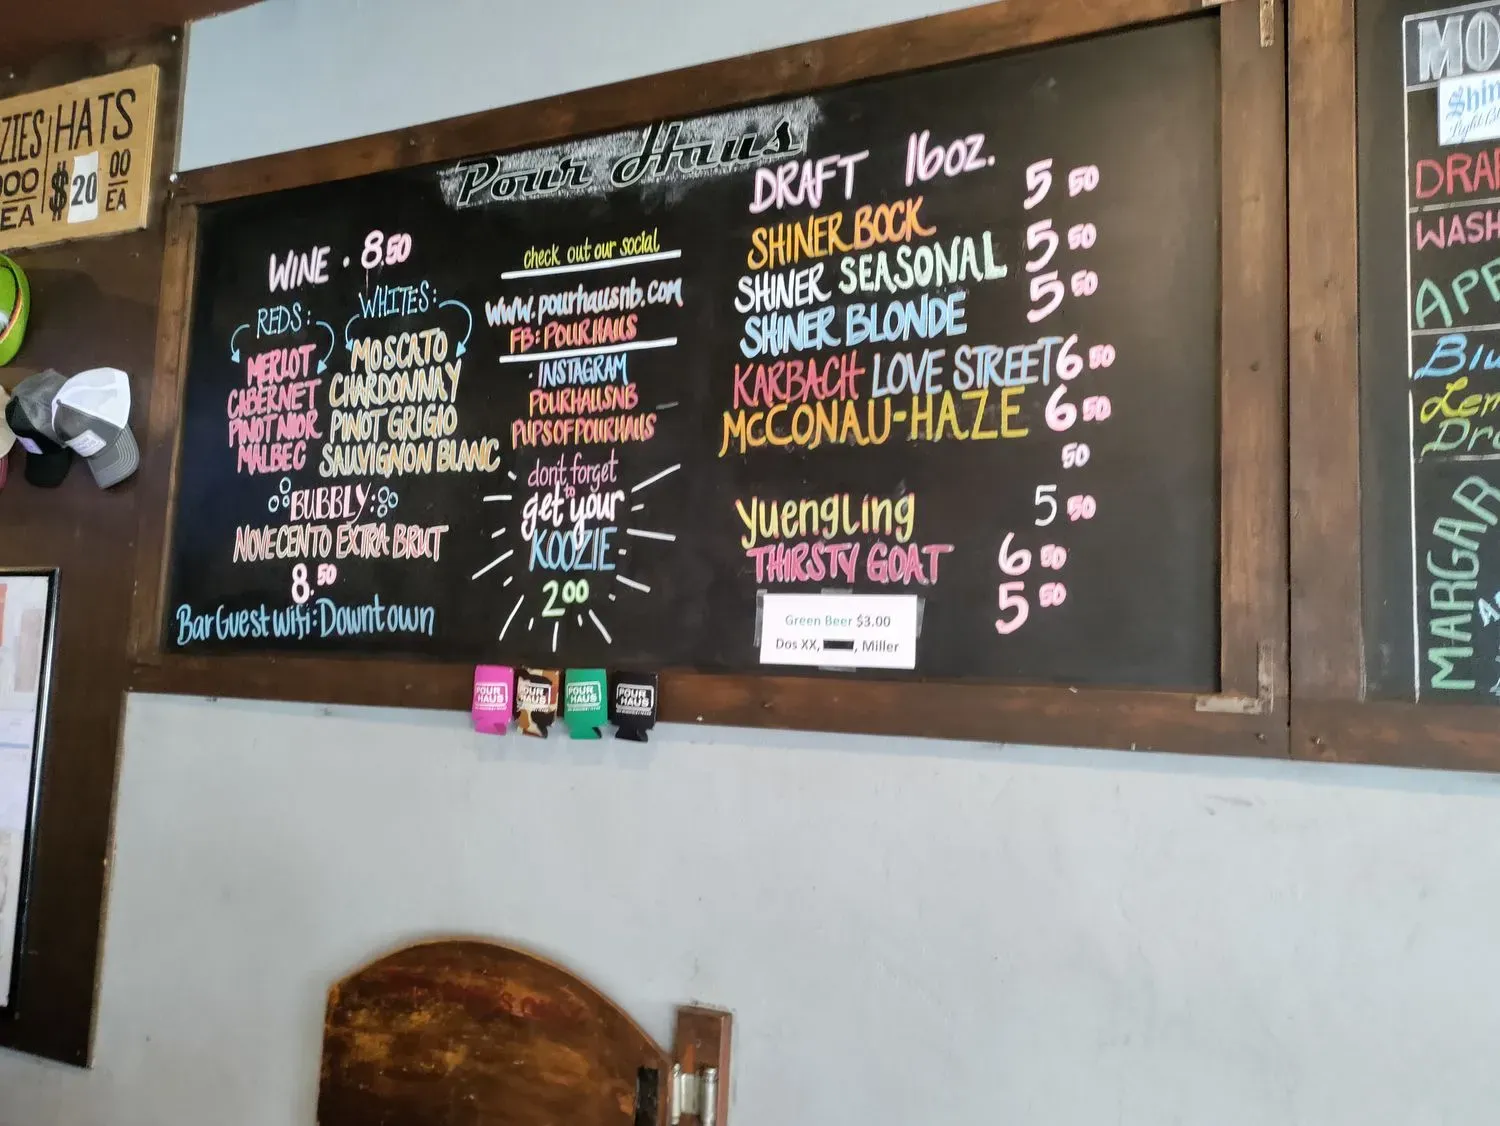 HATS
$20 00
EA
EA
Pour Haus
WINE . 8.50
REDS:
MERLOT
CABERNET
PINOT NOIR
MALBEC
WHITES:
MOSCATO
CHARDONNAY
PINOT GRIGIO
SAUVIGNON BLANC
BUBBLY:
NOVECENTO EXTRA BRUT
8.50
Bar Guest wifi: Downtown
check out our social
www.pourhausnb.com
FB: POURHAUS
INSTAGRAM
POURHAUSNB
PUPSOFPOURHAUS
don't forget
to
get your
KOOZIE
2.00
DRAFT 16oz.
SHINER BOCK 5 50
SHINER SEASONAL 5 50
SHINER BLONDE 5 50
KARBACH LOVE STREET 6 50
McCONAU-HAZE 6 50
50
Yuengling 5 50
THIRSTY GOAT 6 50
5 50
Green Beer $3.00
Dos XX, Miller
POUR
HAUS
POUR
HAUS
POUR
HAUS
POUR
HAUS